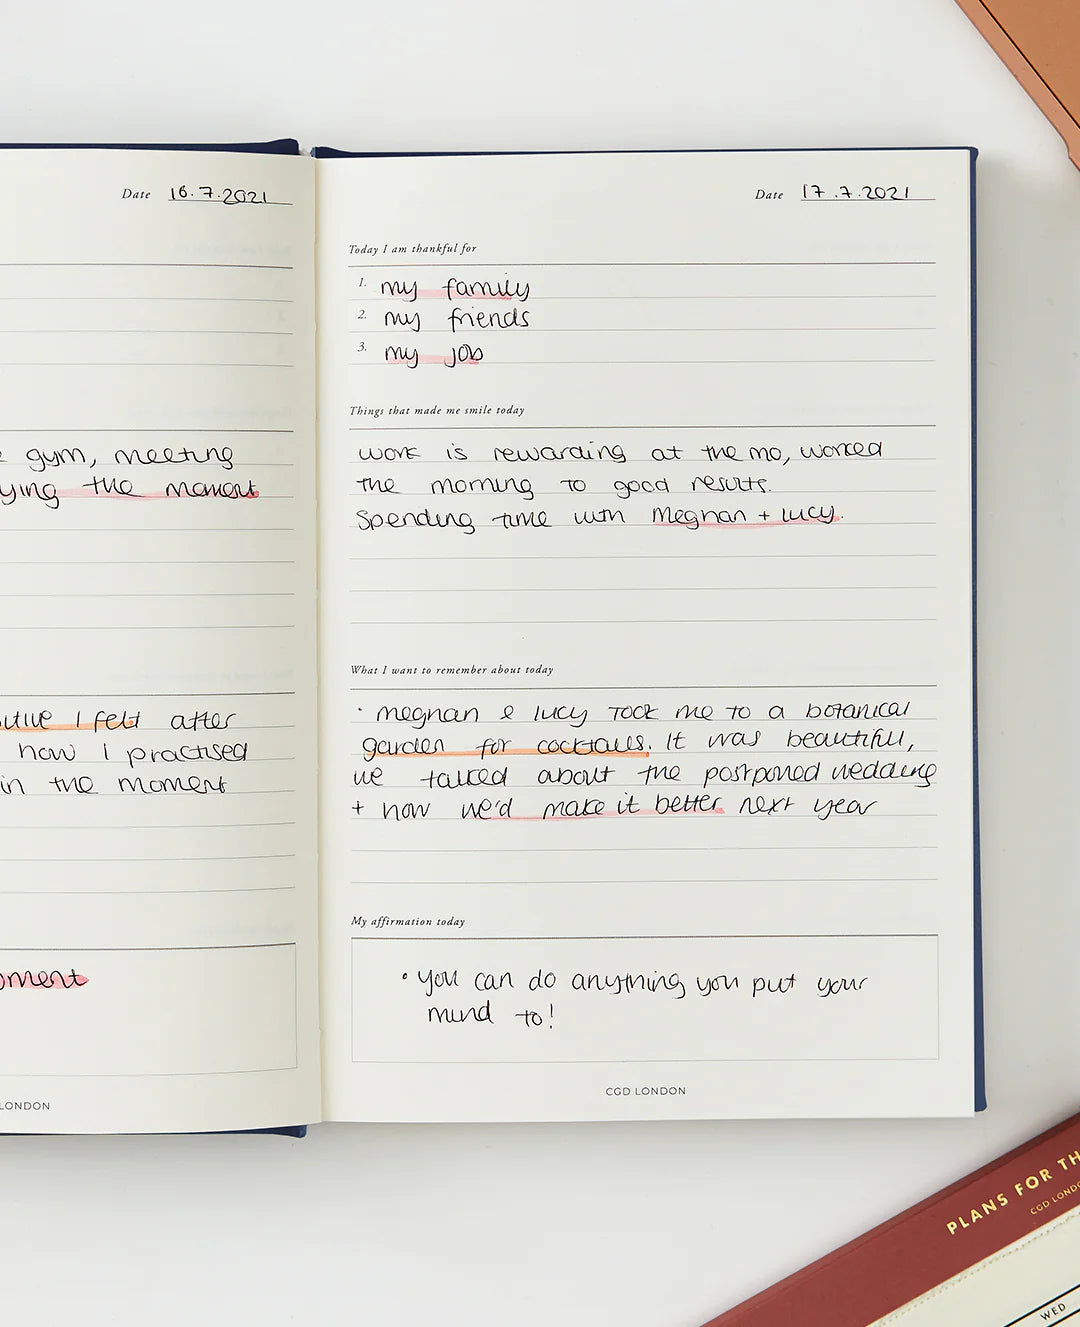 Date 16.7.2021
gym, meeting
ying the moment
itive I felt after
how I practised
in the moment
oment
LONDON
Date 17.7.2021
Today I am thankful for
1. my family
2. my friends
3. my job
Things that made me smile today
work is rewarding at the mo, worked
the morning to good results.
Spending time with Meghan + Lucy.
What I want to remember about today
· Meghan & Lucy took me to a botanical
garden for cocktails. It was beautiful,
we talked about the postponed wedding
+ how we'd make it better next year
My affirmation today
• You can do anything you put your
mind to!
CGD LONDON
PLANS FOR TH
CGD LONDO
WED